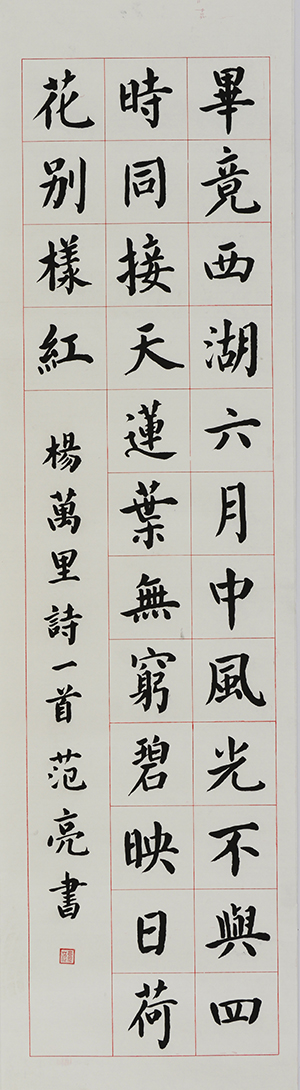 畢竟西湖六月中風光不與四
時同接天蓮葉無窮碧映日荷
花别樣紅
楊萬里詩一首范亮書